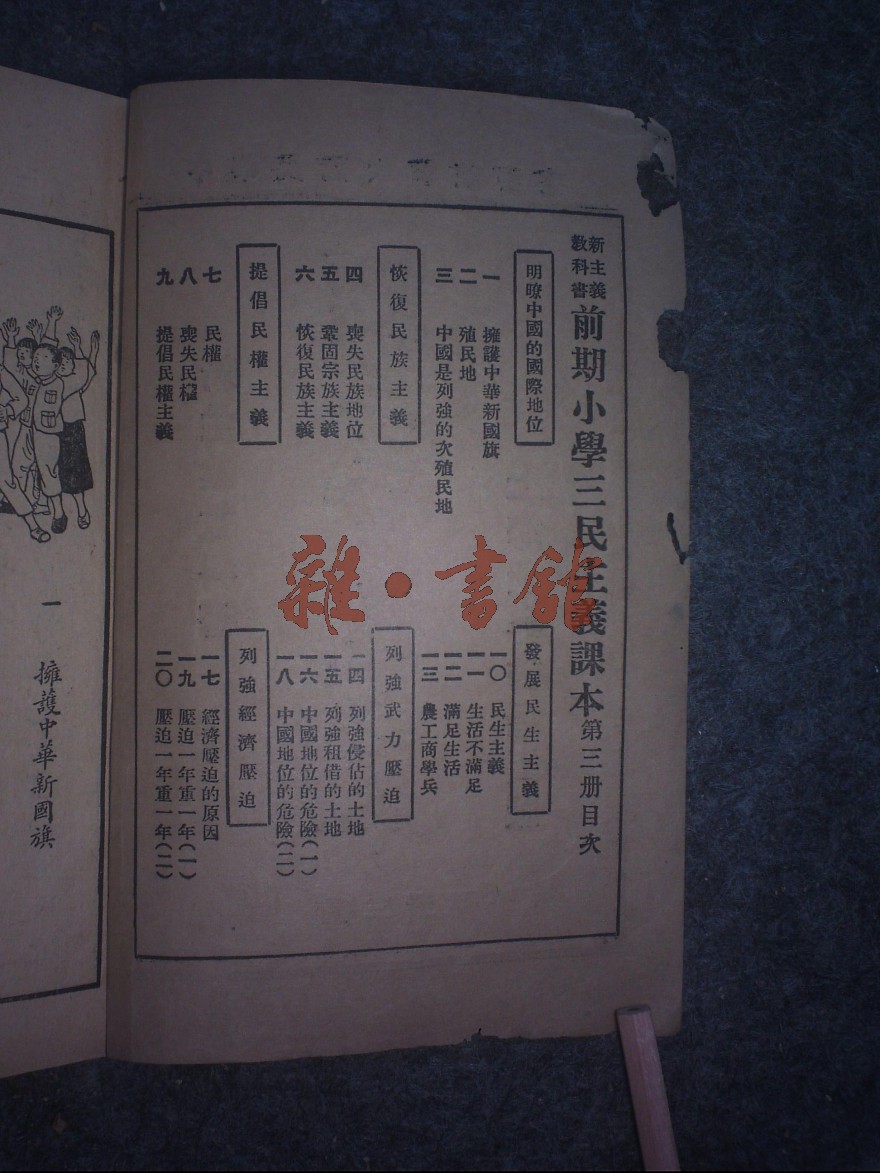 新主義
教科書
前期小學三民主義課本第三册目次
明暸中國的國際地位
一 擁護中華新國旗
二 殖民地
三 中國是列強的次殖民地
恢復民族主義
四 喪失民族地位
五 鞏固宗族主義
六 恢復民族主義
提倡民權主義
七 民權
八 喪失民權
九 提倡民權主義
發展民生主義
一〇 民生主義
一一 生活不滿足
一二 滿足生活
一三 農工商學兵
列強武力壓迫
一四 列強侵佔的土地
一五 列強租借的土地
一六 中國地位的危險(一)
一八 中國地位的危險(二)
列強經濟壓迫
一七 經濟壓迫的原因
一九 壓迫一年重一年(一)
二〇 壓迫一年重一年(二)
一 擁護中華新國旗
雜·書館